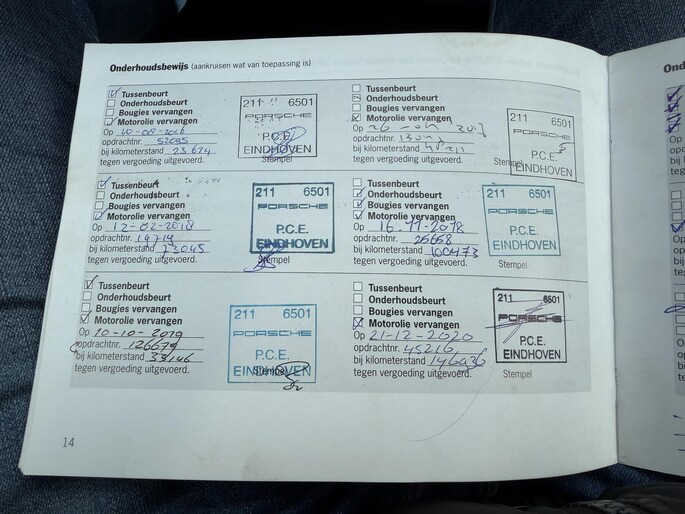 Onderhoudsbewijs (aankruisen wat van toepassing is)
Tussenbeurt
Onderhoudsbeurt
Bougies vervangen
Motorolie vervangen
Op 10-08-2016
opdrachtnr.
bij kilometerstand 23674
tegen vergoeding uitgevoerd.
211 6501
PORSCHE
P.C.E.
EINDHOVEN
Stempel
Tussenbeurt
Onderhoudsbeurt
Bougies vervangen
Motorolie vervangen
Op
opdrachtnr.
bij kilometerstand
tegen vergoeding uitgevoerd.
211 6501
PORSCHE
P.C.E.
EINDHOVEN
Stempel
Tussenbeurt
Onderhoudsbeurt
Bougies vervangen
Motorolie vervangen
Op 12-02-2018
opdrachtnr. 19719
bij kilometerstand 73045
tegen vergoeding uitgevoerd.
211 6501
PORSCHE
P.C.E.
EINDHOVEN
Stempel
Tussenbeurt
Onderhoudsbeurt
Bougies vervangen
Motorolie vervangen
Op 16-11-2018
opdrachtnr. 26658
bij kilometerstand 100473
tegen vergoeding uitgevoerd.
211 6501
PORSCHE
P.C.E.
EINDHOVEN
Stempel
Tussenbeurt
Onderhoudsbeurt
Bougies vervangen
Motorolie vervangen
Op 10-10-2019
opdrachtnr. 126679
bij kilometerstand
tegen vergoeding uitgevoerd.
211 6501
PORSCHE
P.C.E.
EINDHOVEN
Stempel
Tussenbeurt
Onderhoudsbeurt
Bougies vervangen
Motorolie vervangen
Op 21-12-2020
opdrachtnr. 45216
bij kilometerstand 146036
tegen vergoeding uitgevoerd.
211 6501
PORSCHE
P.C.E.
EINDHOVEN
Stempel
14